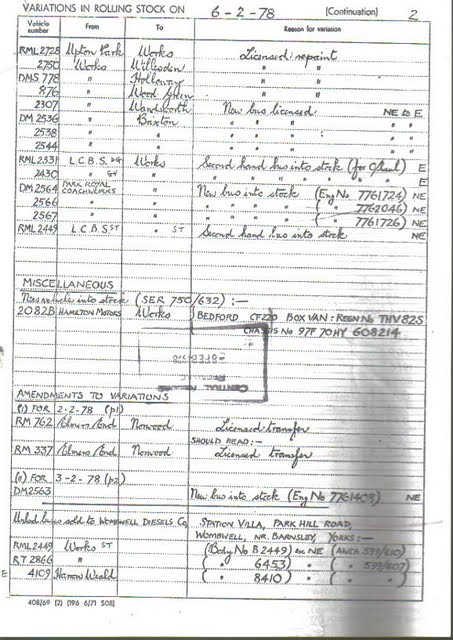 VARIATIONS IN ROLLING STOCK ON 6-2-78 (Continuation) 2
Vehicle number From To Reason for variation
RML2728 Upton Park Works Licensed repaint
2750 Works Willesden " "
DMS 778 " Holloway " "
876 " Wood Green " "
2307 " Wandsworth New bus licensed NE to E
DM 2536 " Brixton " " " " "
2538 " " " " " " "
2544 " " " " " " "
RML2331 L.C.B.S. Works Second hand bus into stock (for O/haul) E
2430 " " " " " " " E
DM2564 PARK ROYAL COACHWORKS " New bus into stock (Eng No 7761724) NE
2566 " " " " " " ( " 7762046) NE
2567 " " " " " " ( " 7761726) NE
RML2449 L.C.B.S ST " ST Second hand bus into stock NE
MISCELLANEOUS
New vehicle into stock (SER 750/632) :—
2082B HAMILTON MOTORS Works BEDFORD CF220 BOX VAN : REGN No THV82S
CHASSIS No 97F 70HY 608214
AMENDMENTS TO VARIATIONS
(1) FOR 2-2-78 (p1)
RM 762 Elmers/End Norwood Licensed transfer
SHOULD READ :—
RM 337 Elmers/End Norwood Licensed transfer
FOR 3-2-78 (p2)
DM2563 New bus into stock (Eng No 7761408) NE
Unlicd buses sold to WOMBWELL DIESELS Co STATION VILLA, PARK HILL ROAD,
WOMBWELL, NR. BARNSLEY, YORKS :—
RML2449 Works ST (Body No B2449) ex NE (AWCA 599/810)
RT 2866 " ( " 6453) " ( " 599/807)
E 4109 Harrow Weald ( " 8410) " ( " " )
408/69 (2) (196 6/71 508)